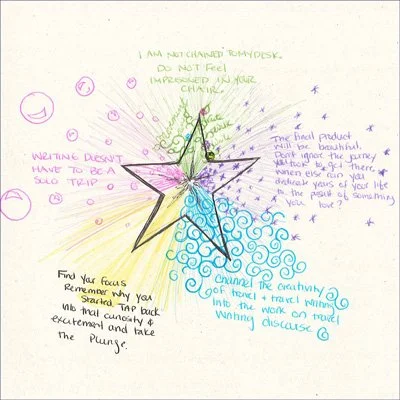 I AM NOT CHAINED TO MY DESK.
DO NOT FEEL
IMPRISONED IN YOUR
CHAIR.
WRITING DOESN'T
HAVE TO BE A
SOLO TRIP
The final product
will be beautiful.
Don't ignore the journey
you took to get there.
When else can you
dedicate years of your life
to the pursuit of something
you love?
Find your focus
Remember why you
started. TAP back
into that curiosity &
excitement and take
The Plunge.
Channel the creativity
of travel + travel writing
into the work on travel
writing discourse